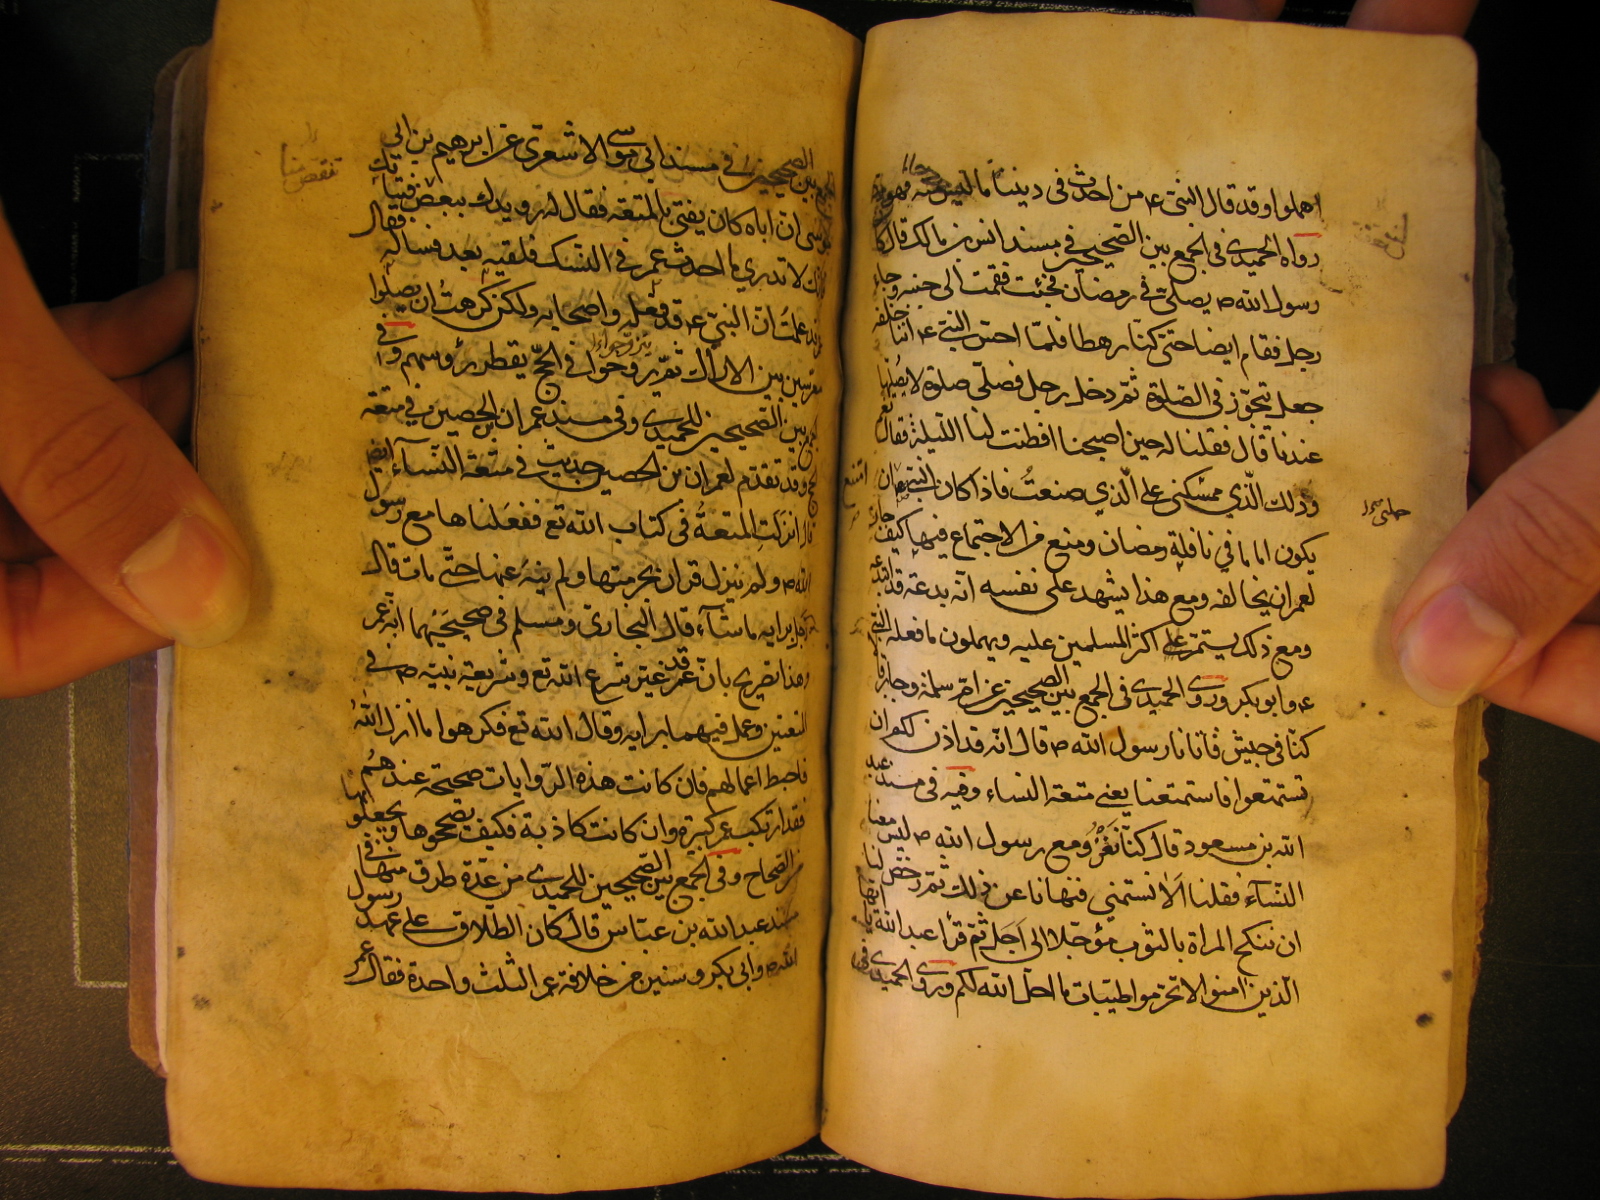 اهملوا وقد قال النبى ع من احدث فى ديننا ما ليس منه فهو رد
رواه الحميدى فى الجمع بين الصحيحين فى مسند انس بن مالك قال كان
رسول الله ص يصلى فى رمضان فجئت فقمت الى جنبه وجاء
رجل فقام ايضا حتى كنا رهطا فلما احس النبى ع اننا خلفه
جعل يتجوز فى الصلوة ثم دخل رحله فصلى صلوة لا يصليها
عندنا قال فقلنا له حين اصبحنا افطنت لنا الليلة فقال نعم
وذلك الذى حملنى على الذي صنعت فاذا كان النبى ع امتنع ان
يكون اماما في نافلة رمضان ومنع من الاجتماع فيها كيف جاز
لعمر ان يخالفه ومع هذا يشهد على نفسه انه بدعة قد ابتدعه
ومع ذلك يستمر على اكثر المسلمين عليه ويهملون ما فعله النبى
ع وابو بكر وروى الحميدى فى الجمع بين الصحيحين عن سلمة وجابر قالا
كنا فى جيش فاتانا رسول الله ص قال انه قد اذن لكم ان
تستمتعوا فاستمتعنا يعنى متعة النساء وفيه فى مسند عبد
الله بن مسعود قال كنا نغزو مع رسول الله ص ليس معنا
النساء فقلنا الا نستمني فنهانا عن ذلك ثم رخص لنا
ان ننكح المراة بالثوب مؤجلا الى اجل ثم قرأ عبد الله يا ايها
الذين امنوا لا تحرموا طيبات ما احل الله لكم وروى الحميدى فى
الجمع بين الصحيحين في مسند ابى موسى الاشعرى عن ابرهيم بن ابى
موسى ان اباه كان يفتى بالمتعة فقال له رويدك ببعض فتياك
فانك لا تدرى ما احدث عمر فى النسك فلقيه بعد فساله فقال
قد علمت ان النبى ع قد فعله واصحابه ولكن كرهت ان يصلوا
معرسين بين الاراك ثم يروحوا فى الحج يقطر رؤسهم وفى
الجمع بين الصحيحين للحميدى وفى مسند عمران بن الحصين فى متعة
الحج وقد تقدم لعمران بن الحصين حديث فى متعة النساء ايضا
قال انزلت المتعة فى كتاب الله تع ففعلناها مع رسول
الله ص ولم ينزل قران بحرمتها ولم ينه عنها حتى مات قال
رجل برايه ما شاء قال البخارى ومسلم فى صحيحيهما انه عمر
وهذا تصريح بان عمر قد غير شرع الله تع وشريعة نبيه ص فى
المتعتين وعمل فيهما برايه وقال الله تع فكرهوا ما انزل الله
فاحبط اعمالهم فان كانت هذه الروايات صحيحة عندهم
فقد ارتكب عمر كبيرة وان كانت كاذبة فكيف يصححوها ويجعلونها
من الصحاح وفى الجمع بين الصحيحين للحميدى من عدة طرق منها فى
مسند عبد الله بن عباس قال كان الطلاق على عهد رسول
الله ص وابى بكر وسنين من خلافة عمر الثلث واحدة فقال عمر